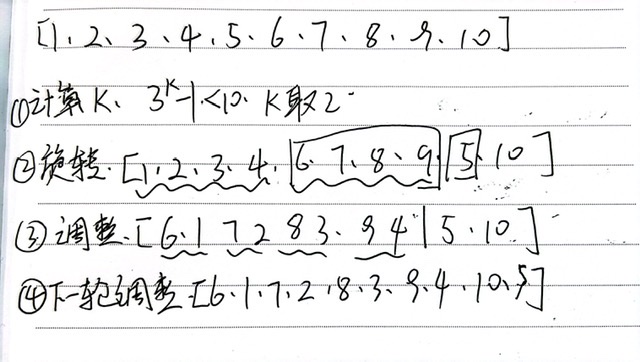 [1、2、3、4、5、6、7、8、9、10]
①计算K、3^K-1<10、K取2
②旋转、[1、2、3、4、6、7、8、9、5、10]
③调整、[6、1 7 2 8 3、9 4 | 5、10]
④下一轮调整、[6、1、7、2、8、3、9、4、10、5]